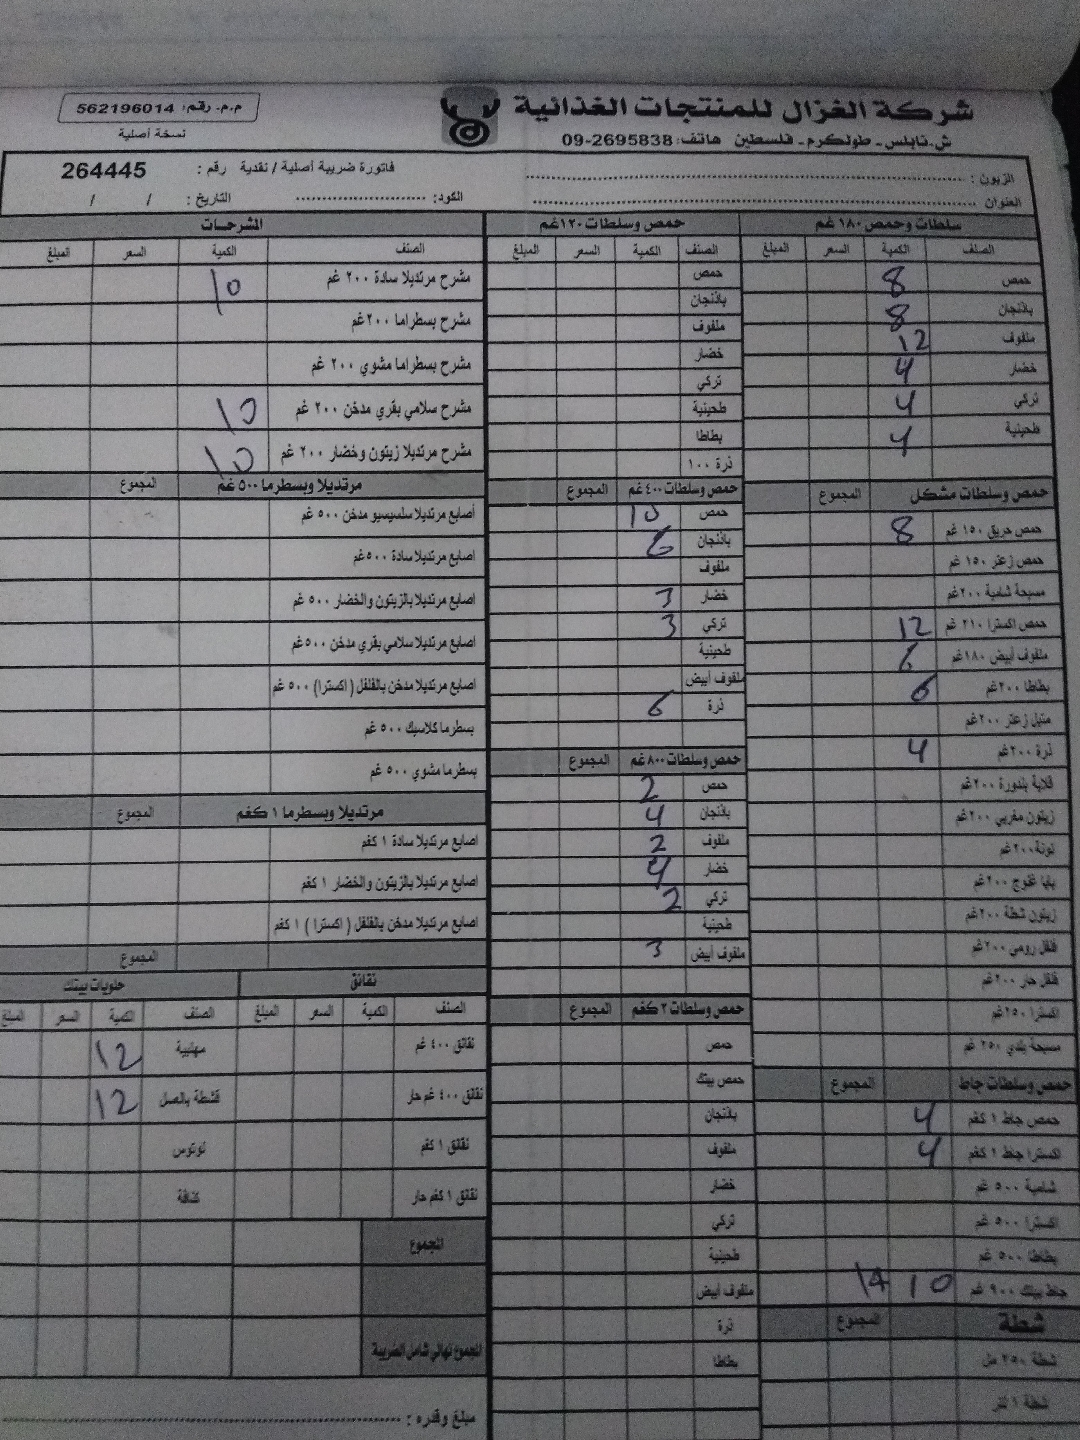 شركة الغزال للمنتجات الغذائية
ش.نابلس - طولكرم - فلسطين هاتف: 09-2695838
م.م. رقم: 562196014
نسخة أصلية
الزبون :
فاتورة ضريبة أصلية / نقدية رقم : 264445
العنوان
الكود:
التاريخ : / /
سلطات وحمص ١٨٠ غم
الصنف الكمية السعر المبلغ
حمص 8
باذنجان 8
ملفوف 12
خضار 4
تركي 4
طحينية 4
حمص وسلطات مشكل المجموع
حمص حريق ١٥٠ غم 8
حمص زعتر ١٥٠ غم
مسبحة شامية ٢٠٠غم
حمص اكسترا ٢١٠ غم 12
ملفوف أبيض ١٨٠غم 6
بطاطا ٢٠٠غم 6
متبل زعتر ٢٠٠غم
ذرة ٢٠٠غم 4
قلاية بندورة ٢٠٠غم
زيتون مغربي ٢٠٠غم
تونة ٢٠٠غم
بابا غنوج ٢٠٠غم
زيتون شطة ٢٠٠غم
فلفل رومي ٢٠٠غم
فلفل حار ٢٠٠غم
اكسترا ٢٥٠غم
مسبحة بلدي ٢٥٠ غم
حمص وسلطات جاط المجموع
حمص جاط ١ كغم 4
اكسترا جاط ١ كغم 4
شامية ٥٠٠ غم
اكسترا ٥٠٠ غم
بطاطا ٥٠٠ غم
جاط بيتك ٩٠٠ غم 10 14
شطة المجموع
شطة ٢٥٠ مل
شطة ١ لتر
حمص وسلطات ١٢٠غم
الصنف الكمية السعر المبلغ
حمص
باذنجان
ملفوف
خضار
تركي
طحينية
بطاطا
ذرة ١٠٠
حمص وسلطات ٤٠٠ غم المجموع
حمص 10
باذنجان 6
ملفوف
خضار 3
تركي 3
طحينية
ملفوف أبيض
ذرة 6
حمص وسلطات ٨٠٠غم المجموع
حمص 2
باذنجان 4
ملفوف 2
خضار 4
تركي 2
طحينية
ملفوف أبيض 3
حمص وسلطات ٢ كغم المجموع
حمص
حمص بيتك
باذنجان
ملفوف
خضار
تركي
طحينية
ملفوف أبيض
ذرة
بطاطا
المشرحات
الصنف الكمية السعر المبلغ
مشرح مرتديلا سادة ٢٠٠ غم 10
مشرح بسطراما ٢٠٠غم
مشرح بسطراما مشوي ٢٠٠ غم
مشرح سلامي بقري مدخن ٢٠٠ غم 10
مشرح مرتديلا زيتون وخضار ٢٠٠ غم 10
مرتديلا وبسطرما ٥٠٠ غم المجموع
أصابع مرتديلا سلسيسيو مدخن ٥٠٠ غم
اصابع مرتديلا سادة ٥٠٠غم
اصابع مرتديلا بالزيتون والخضار ٥٠٠ غم
اصابع مرتديلا سلامي بقري مدخن ٥٠٠غم
اصابع مرتديلا مدخن بالفلفل ( اكسترا) ٥٠٠ غم
بسطرما كلاسيك ٥٠٠ غم
بسطرما مشوي ٥٠٠ غم
مرتديلا وبسطرما ١ كغم المجموع
اصابع مرتديلا سادة ١ كغم
اصابع مرتديلا بالزيتون والخضار ١ كغم
اصابع مرتديلا مدخن بالفلفل ( اكسترا ) ١ كغم
المجموع
نقانق
الصنف الكمية السعر المبلغ
نقانق ٤٠٠ غم
نقانق ٤٠٠ غم حار
نقانق ١ كغم
نقانق ١ كغم حار
حلويات بيتك
الصنف الكمية السعر المبلغ
مهلبية 12
قشطة بالعسل 12
لوتوس
كنافة
المجموع
المجموع نهائي شامل الضريبة
مبلغ وقدره :